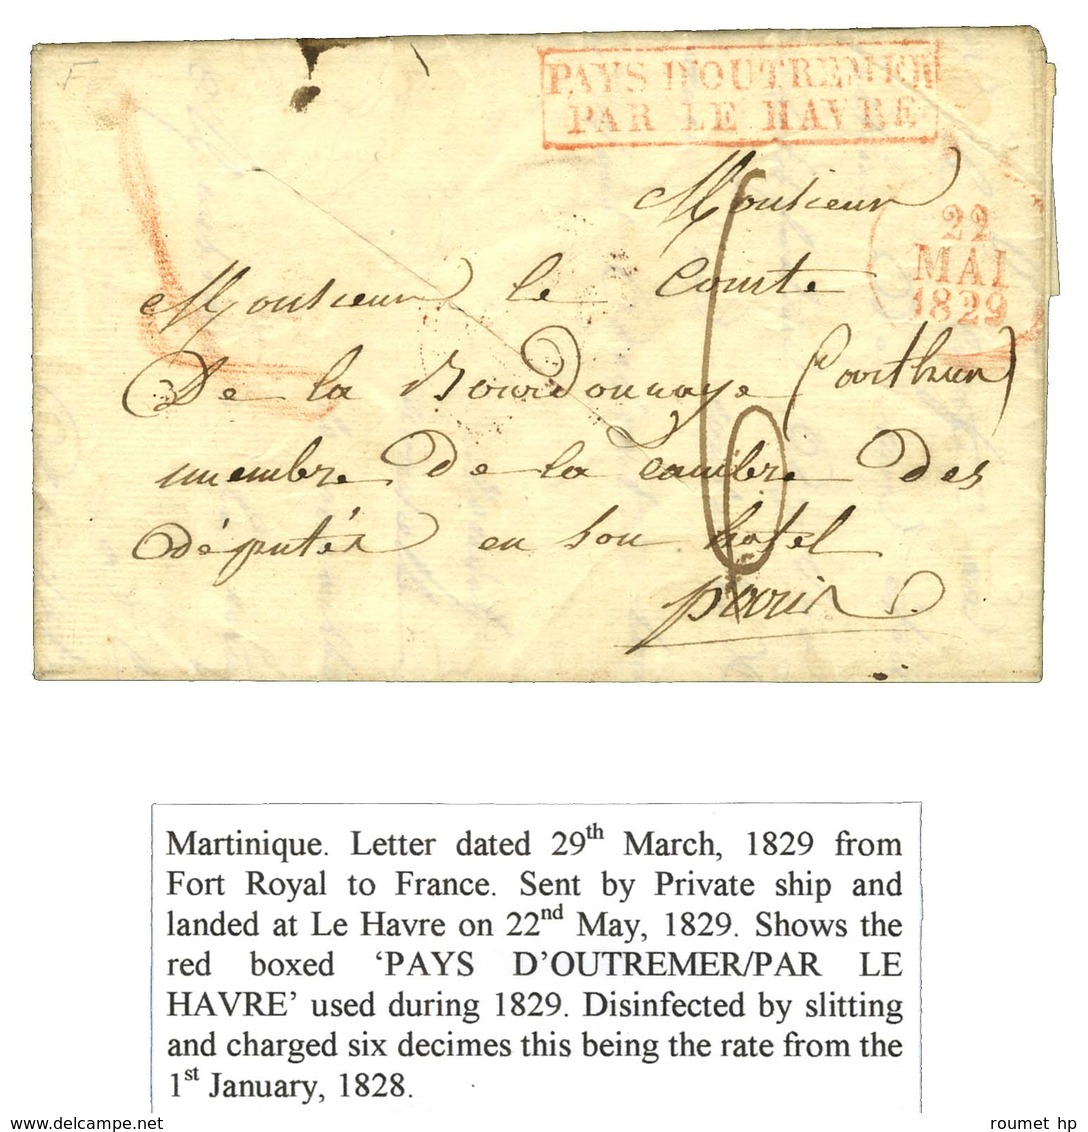 F
PAYS D'OUTREMER
PAR LE HAVRE
Monsieur
22
MAI
1829
Monsieur le Comte
De la Bourdonnaye (arthur)
membre de la Cambre des
députés en son hotel
paris
6
Martinique. Letter dated 29th March, 1829 from
Fort Royal to France. Sent by Private ship and
landed at Le Havre on 22nd May, 1829. Shows the
red boxed ‘PAYS D’OUTREMER/PAR LE
HAVRE’ used during 1829. Disinfected by slitting
and charged six decimes this being the rate from the
1st January, 1828.
www.delcampe.net
roumet hp